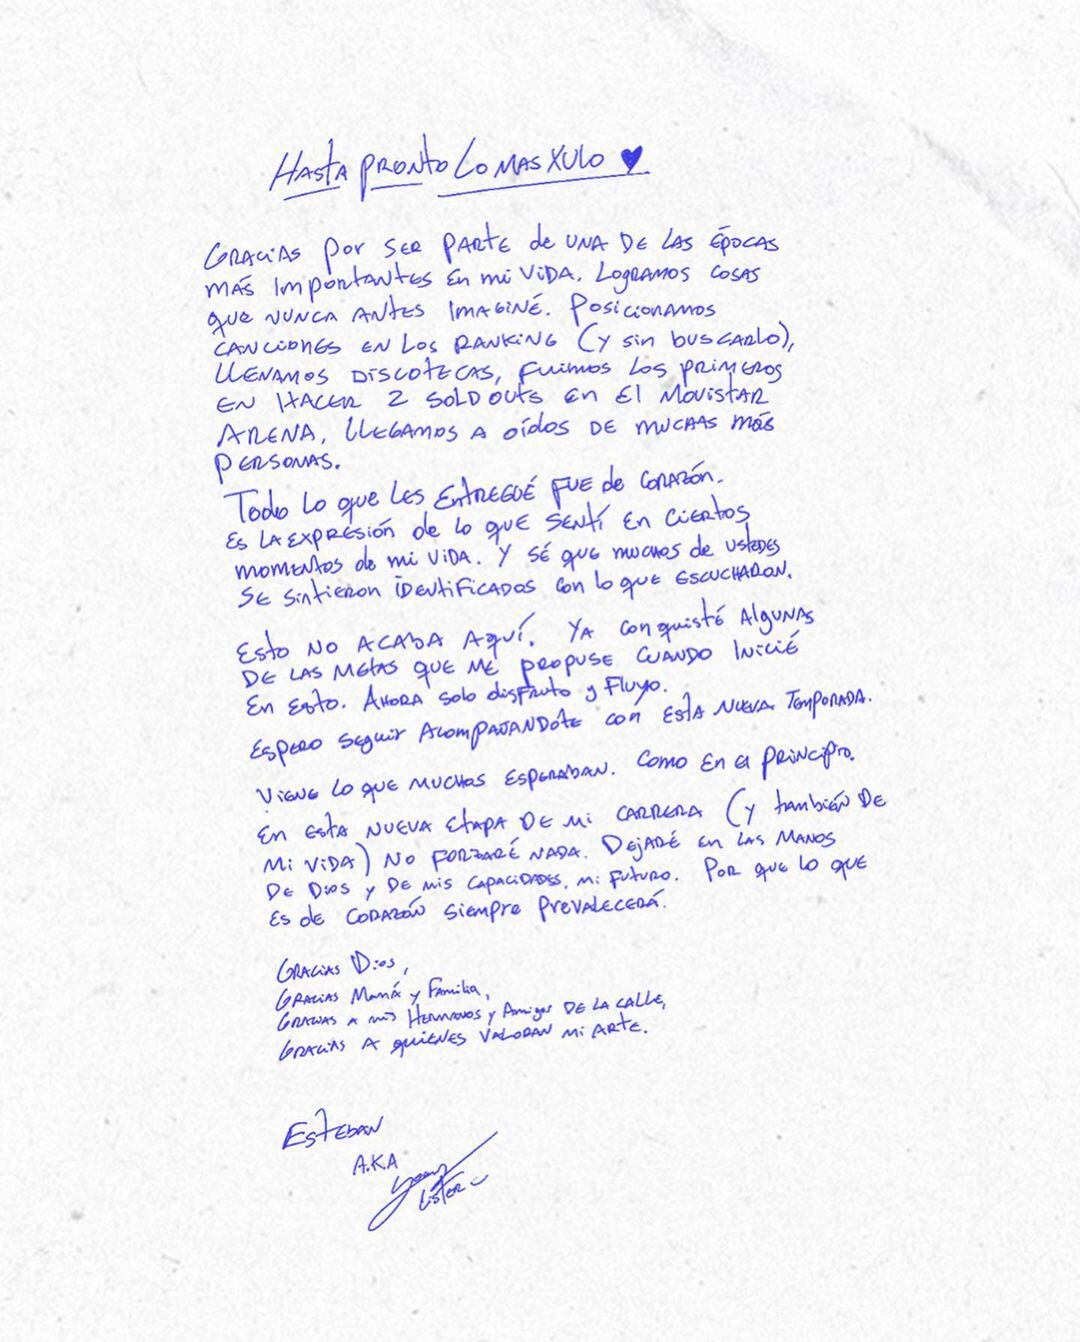 HASTA PRONTO LO MAS XULO ♥
GRACIAS POR SER PARTE de UNA DE LAS ÉPOCAS
MÁS IMPORTANTES EN mi VIDA. LOGRAMOS COSAS
QUE NUNCA ANTES IMAGINÉ. POSICIONAMOS
CANCIONES EN LOS RANKING (Y sin BUSCARLO),
LLENAMOS DISCOTECAS, FUIMOS LOS PRIMEROS
EN HACER 2 SOLD OUTS EN EL MOVISTAR
ARENA, LLEGAMOS A OÍDOS DE MUCHAS MÁS
PERSONAS.
Todo lo que LES ENTREGUÉ FUE de CORAZÓN.
ES LA EXPRESIÓN de lo que SENTÍ EN CIERTOS
MOMENTOS de mi VIDA. Y SÉ QUE MUCHOS de USTEDES
SE SINTIERON IDENTIFICADOS con lo que ESCUCHARON.
ESTO NO ACABA AQUÍ. YA CONQUISTÉ ALGUNAS
DE LAS METAS QUE ME PROPUSE CUANDO INICIÉ
EN ESTO. AHORA SOLO DISFRUTO y FLUYO.
ESPERO SEGUIR ACOMPAJANDOTE con ESTA NUEVA TEMPORADA.
VIENE LO QUE MUCHOS ESPERABAN. COMO EN El PRINCIPIO.
EN ESTA NUEVA ETAPA DE MI CARRERA (y también DE
MI VIDA) NO FORZARÉ NADA. DEJARÉ EN LAS MANOS
DE DIOS y DE MIS CAPACIDADES, MI FUTURO. POR QUE LO QUE
ES de CORAZÓN SIEMPRE PREVALECERÁ.
GRACIAS DIOS,
GRACIAS Mamá y Familia,
GRACIAS A mis HERMANOS y Amigos DE LA CALLE,
GRACIAS A QUIENES VALORAN MI ARTE.
ESTEBAN
A.K.A
Young
LISTER